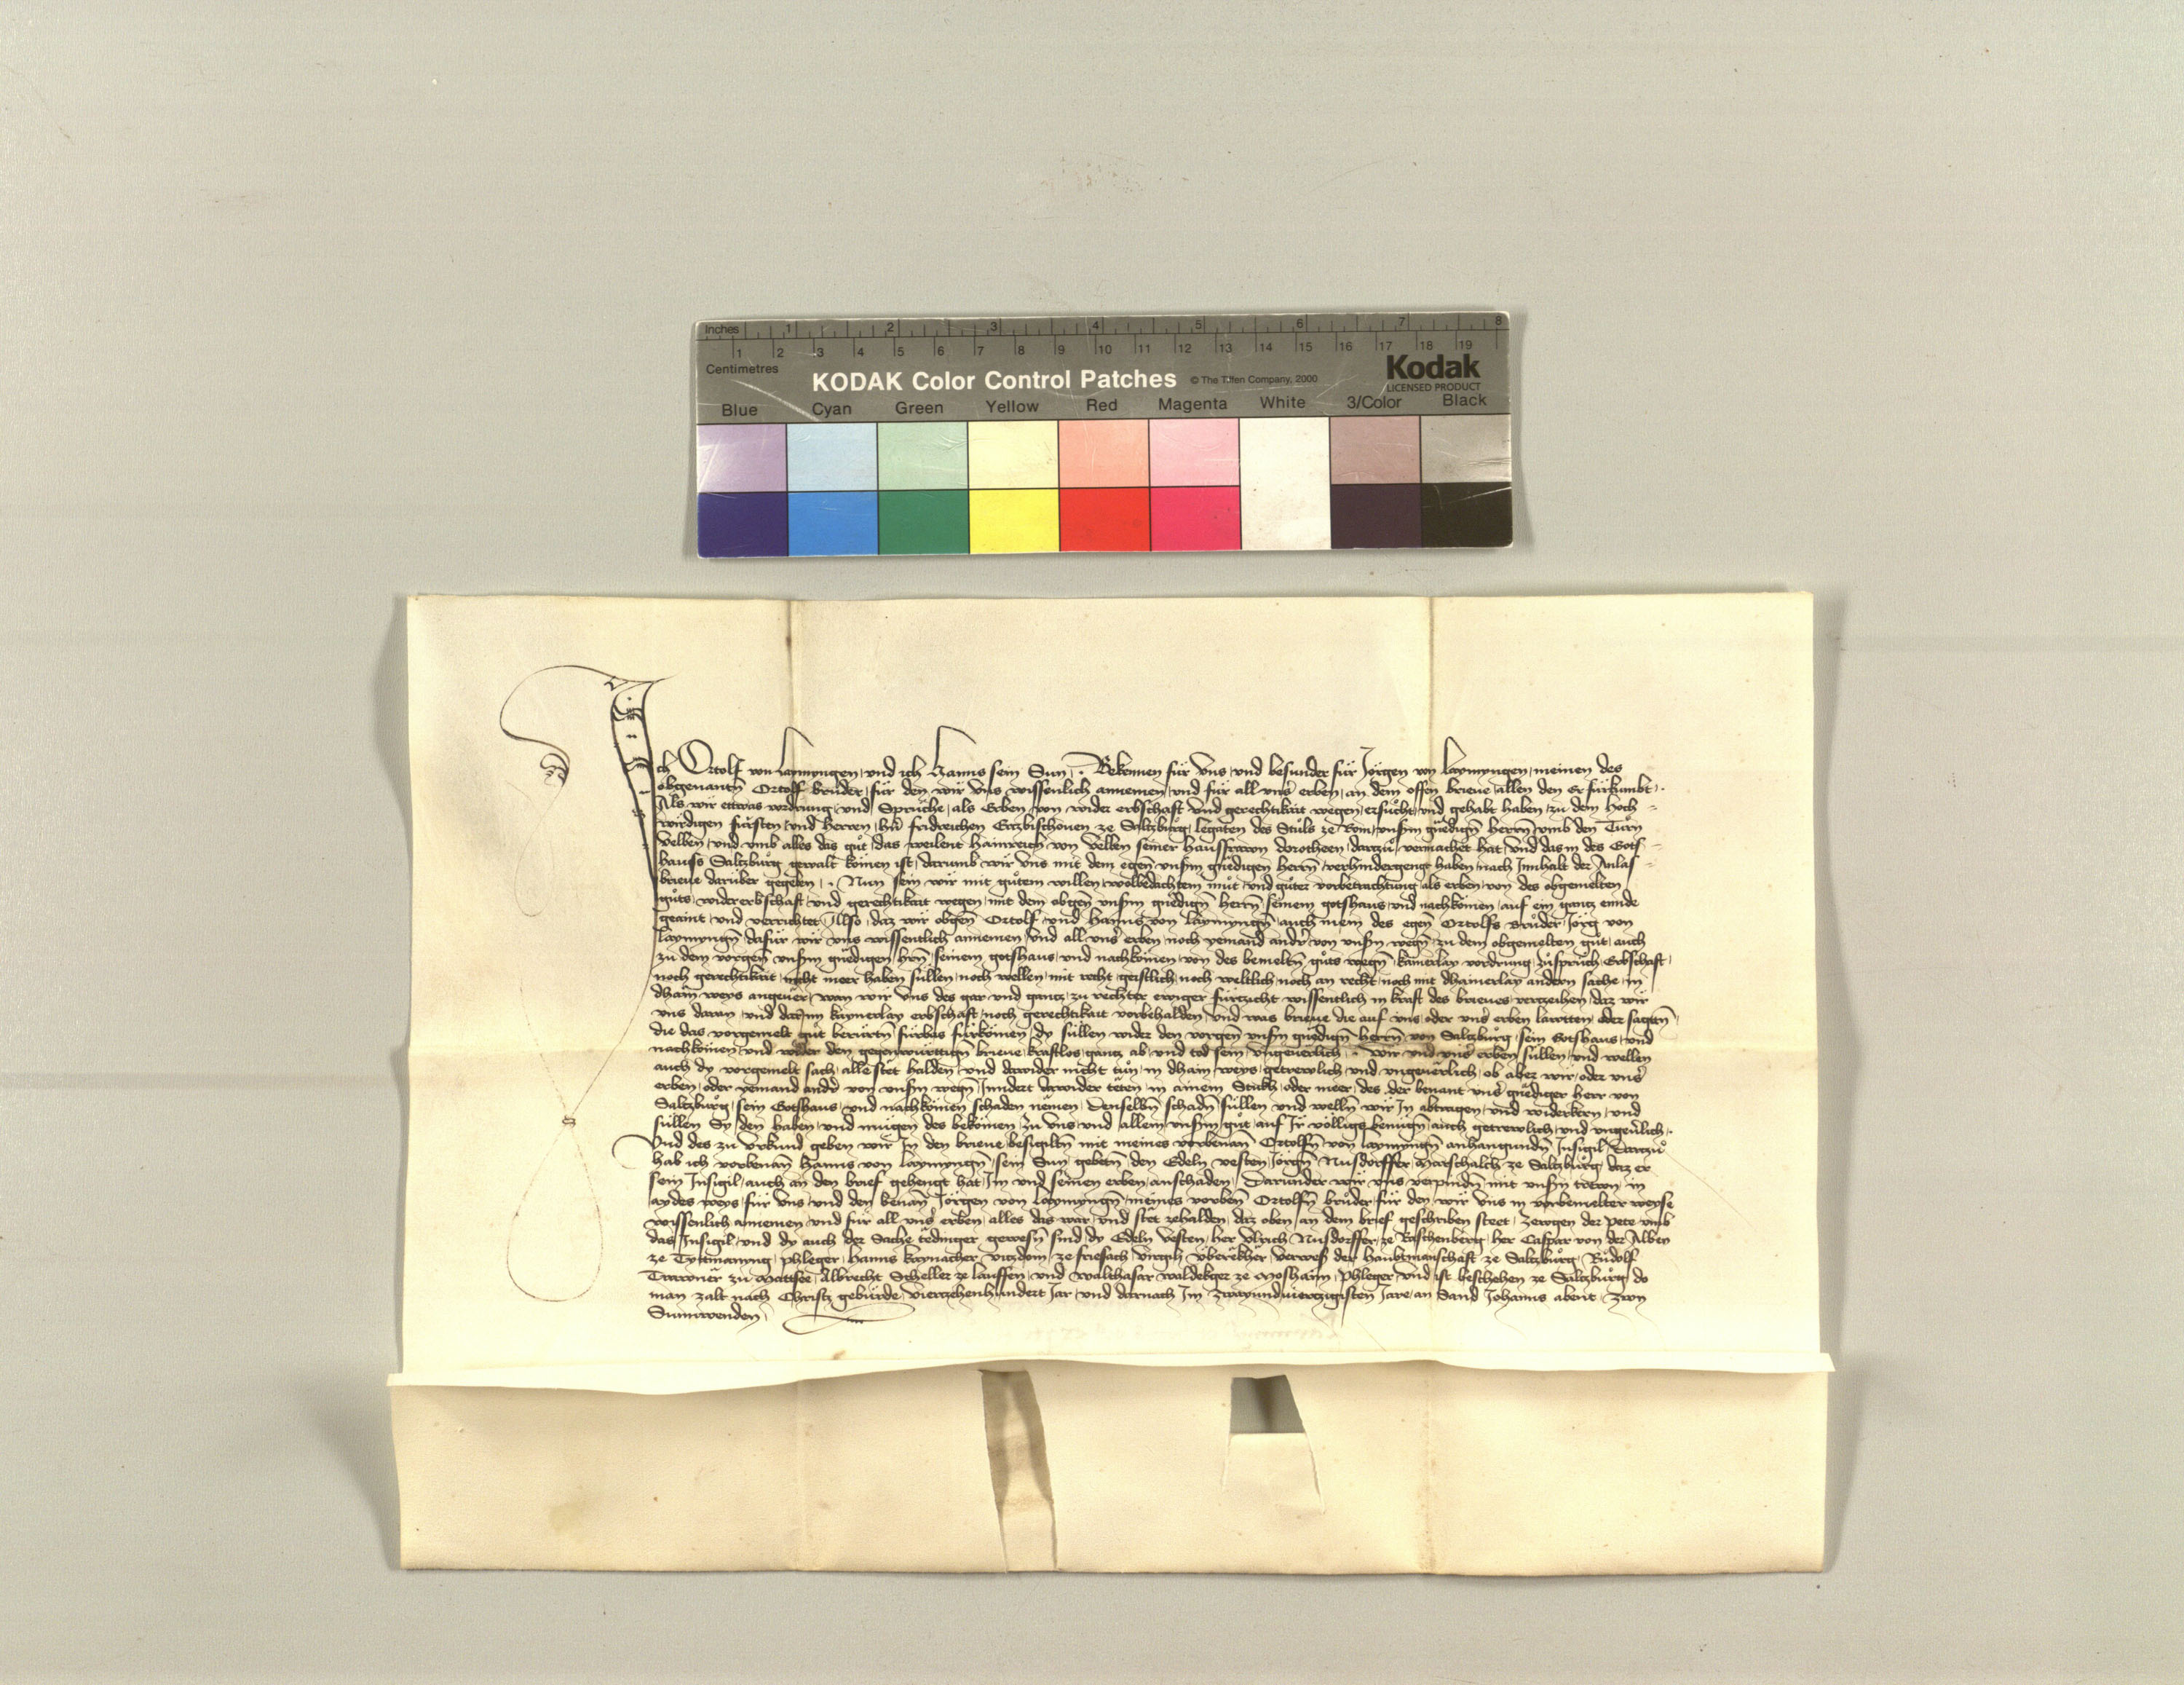 Inches 1 2 3 4 5 6 7 8
1 2 3 4 5 6 7 8 9 10 11 12 13 14 15 16 17 18 19
Centimetres
KODAK Color Control Patches © The Tiffen Company, 2000 Kodak
LICENSED PRODUCT
Blue Cyan Green Yellow Red Magenta White 3/Color Black
Ich Ortolf von Laymyngen, und ich Hanns sein Sun, Bekennen für uns, und besunder für Jörgen von Laymyngen, meinen des
obgenantñ Ortolf brůder, für den wir uns wissenlich annemen, und für all unser erben, an dem offen brieue, allen den er fürkumbt.
Als wir ettwas vordrung, und Sprüche, als Erben, von wider erbschaft und gerechtikait wegen, ersůcht, und gehabt haben, zu dem Hoch-
wirdigen fürsten und Herren, hñ fridreichen Ertzbischouen ze Saltzburg, legaten des Stůls ze Rom, unserm gnedigñ herrñ umb den Turn
Velben, und umb alles das gůt, das weilent Hainreich von Velben seiner haussfrawn dorotheen, dartzů vermachet hat, und das in des Gots-
hauss Saltzburg gewalt komen ist, darumb wir uns mit dem egeñ unserm gnedigen herrñ, verhindergengt haben, nach Innhalt der Anlas-
brieue darüber gegeben, Nun sein wir mit gůtem willen, wolbedachtem můt, und gůter vorbetrachtung, als erben, von des obgemelten
gůts, widererbschaft, und gerechtikait wegen, mit dem obgeñ unserm gnedigñ herrñ, seinem gotshaus, und nachkomen, auf ein gantz ennde
geaint, und verrichtet, Also, daz wir obgeñ Ortolf, und Hanns von Laymyngñ, auch mein des egeñ Ortolfs brůder, Jörg von
Laymyngñ, dafür wir uns wissentlich annemen, und all unser erben, noch yemand ander von unsern wegñ, zu dem obgemelten gůt, auch
zu dem vorgeñ unserm gnedigen hrñ, seinem gotshaus, und nachkomen, von des bemeltñ gůts wegñ, kainerlay vordrung, zůsprüch, Erbschaft,
noch gerechtikait, nicht meer haben süllen, noch wellen, mit recht, geistlich, noch weltlich, noch an recht, noch mit dhainerlay andern sache, in
dhain weys, angeuer, wan wir uns des gar und gantz, zu rechter ewiger fürtzicht wissentlich in kraft des brieues vertzeihen, daz wir
uns daran, und darinn kaynerlay erbschaft, noch gerechtikait vorbehalden, und was brieue die auf uns, oder unser erben lawtten, oder sagten,
die das vorgemelt gůt berürtñ fürbas fürkömen, dy süllen wider den vorgeñ unsern gnedigñ herrñ von Saltzburg, sein Gotshaus, und
nachkomen, und wider den gegenwürttign brieue, kraftlos, gantz ab, und tod sein, ungeuerlich, Wir und unser erben süllen, und wellen
auch dy vorgemelt sach, alle stet halden, und dawider nicht tůn, in dhain weys, getrewlich und ungeuerlich, ob aber wir, oder unser
erben, oder yemand ander von unsern wegñ, Inndert dawider teten, in ainem Stükh, oder meer, des der benant unser gnediger herr von
Saltzburg, sein Gotshaus, und nachkomen schaden nemen, Denselbñ schadñ süllen und wellñ wir In abtragen, und widerkern, und
süllen Sy den haben, und mügen des bekomen, zu uns und allem unserm gůt, auf Ir völligs benügñ, auch getrewlich, und ungeuerlich.
Und des zu urkund geben wir In den brieue, besigiltñ mit meines vorbenañ Ortolfñ von Laymyngñ anhangundñ Insigil, Dartzů
hab ich vorbenañ Hanns von Laymyngñ, sein Sun, gebetñ, den Edeln vesten, Jörgñ Nusdorffer, Marschalch ze Saltzburg, daz er
sein Insigil, auch an den brief gehengt hat, Im und seinen erben, anschaden, Darunder wir uns verpindñ, mit unsern trewn, in
aydes weys, für uns, und den benañ Jörgen von Laymyngñ, meines vorbeñ Ortolfñ brůder, für den wir uns in vorbemelter weyse
wissenlich annemen und für all unser erben, alles das war, und stet zehalden, daz oben, an dem brief geschriben steet, Zewgen der pete umb
das Insigil, und dy auch der Sache tedinger gewesñ sind, dy Edeln Vesten, her Ulrich Nusdorffer, ze Raschenberg, her Caspar von der Alben
ze Tyttmanyng, phleger, Hanns kaynacher vitzdom, ze friesach, Virgili überekher, Verweser der haubtmanschaft ze Saltzburg, Růdolf
Trawner zu Mattsee, Albrecht Scheller ze Lauffen, und Walthasar Waldekger ze Moshaim, phleger, und ist beschehen ze Saltzburg, do
man zalt nach Christz gebürde, viertzehenhundert Jar, und darnach Im zwayundviertzigisten Jare, an Sand Johanns abent, zwn
Sunnwenden,